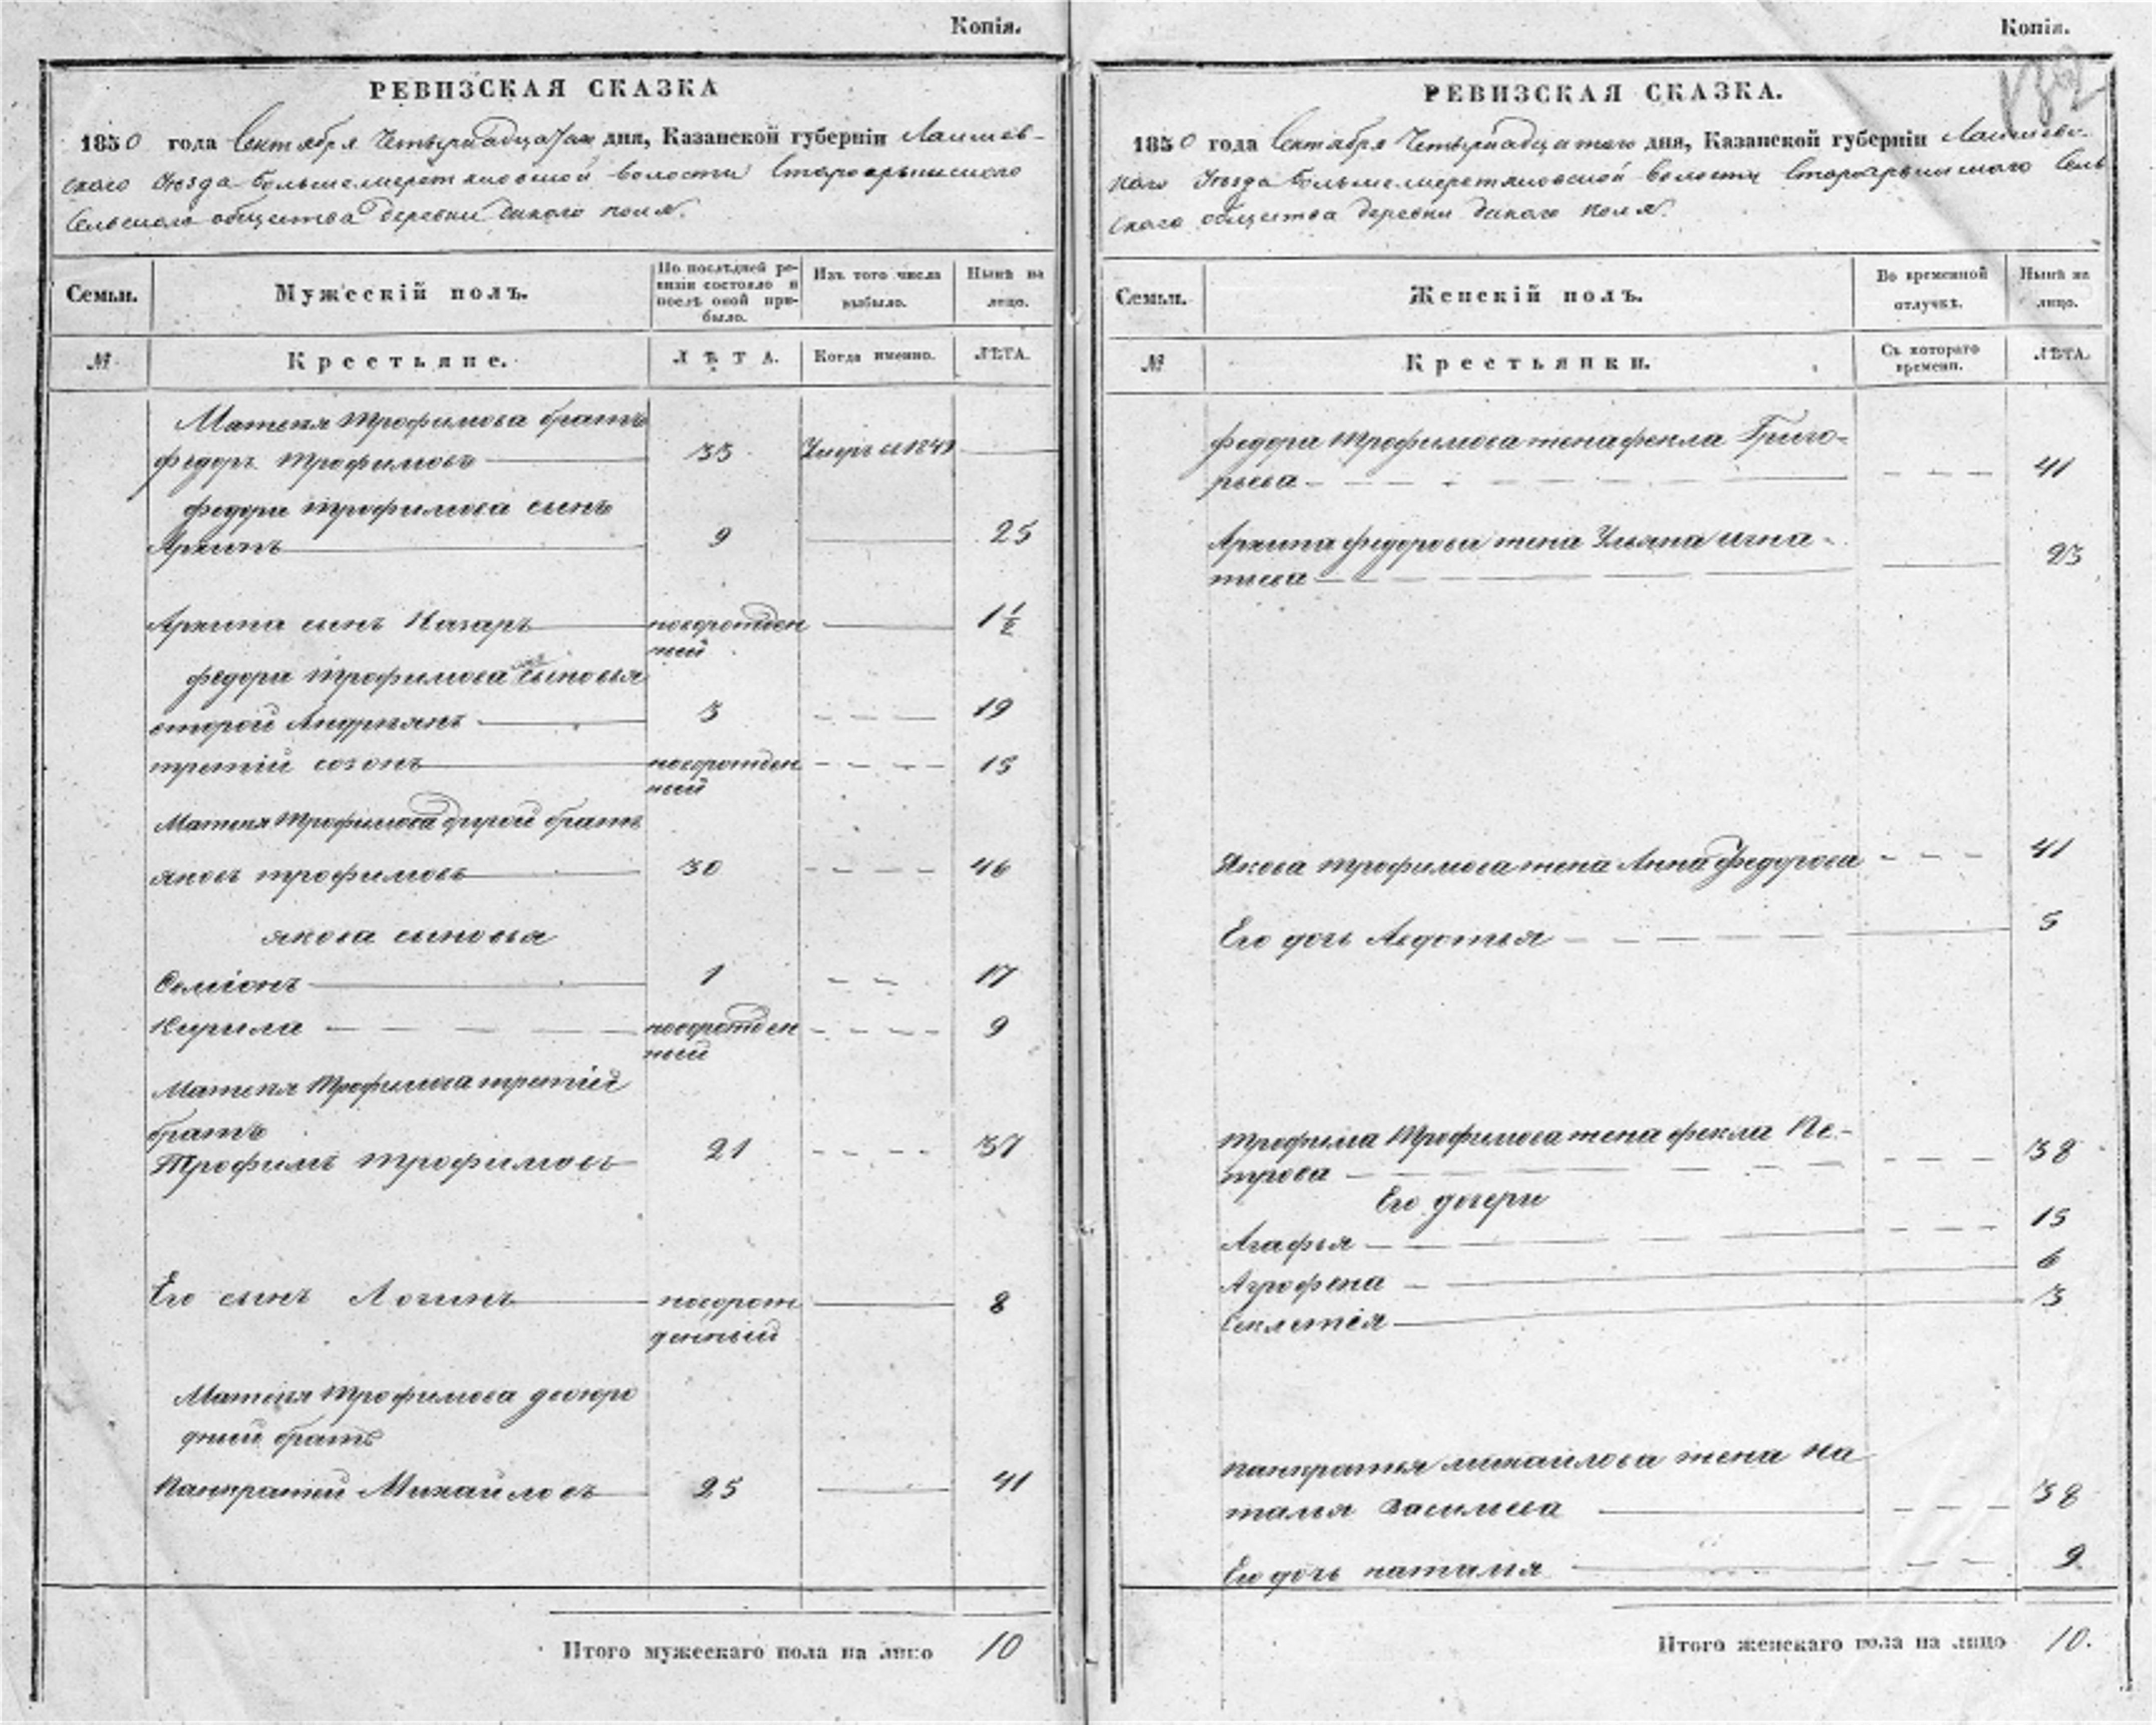 Копія.
РЕВИЗСКАЯ СКАЗКА
1850 года Сентября Четырнадцатаго дня, Казанской губерніи Лаишев-
скаго Уезда Большемеретяковской волости Староарышскаго
Сельскаго общества деревни дикаго поля.
Семьи.
Мужескій полъ.
По послѣдней ре-
визіи состояло и
послѣ оной при-
было.
Изъ того числа
выбыло.
Нынѣ на
лицо.
№
Крестьяне.
ЛѢТА.
Когда именно.
ЛѢТА.
Матвея Трофимова братъ
федоръ трофимовъ 33 Умеръ в 1849
федора трофимова сынъ
Архипъ 9 25
Архипа сынъ Назаръ новорожден 1 1/2
ный
федора трофимова сыновья
второй Андриянъ 3 19
третій созонъ новорожден 15
ный
Матвея Трофимова другой братъ
яковъ трофимовъ 30 46
якова сыновья
Семіонъ 1 17
Кирила новорожден 9
ный
Матвея Трофимова третій
братъ
Трофимъ трофимовъ 21 37
Его сынъ Логинъ новорож 8
денный
Матвея Трофимова двоюро
дный братъ
Панкратий Михайловъ 25 41
Итого мужескаго пола на лицо 10
Копія.
132
РЕВИЗСКАЯ СКАЗКА.
1850 года Сентября Четырнадцатаго дня, Казанской губерніи Лаишевс-
каго Уезда Большемеретяковской волости Староарышскаго Сель
скаго общества деревни дикаго поля.
Семьи.
Женскій полъ.
Во временной
отлучкѣ.
Нынѣ на
лицо.
№
Крестьянки.
Съ котораго
времени.
ЛѢТА.
федора трофимова жена фекла Григо-
рьева 41
Архипа федорова жена Ульяна игна-
тьева 23
Якова трофимова жена Анна федорова 41
Его дочь Авдотья 5
трофима Трофимова жена фекла Пе-
трова 38
Его дочери
Агафья 15
Агрофена 6
Секлетея 3
панкратья михайлова жена На
талья васильева 38
Его дочь наталья 9
Итого женскаго пола на лицо 10.